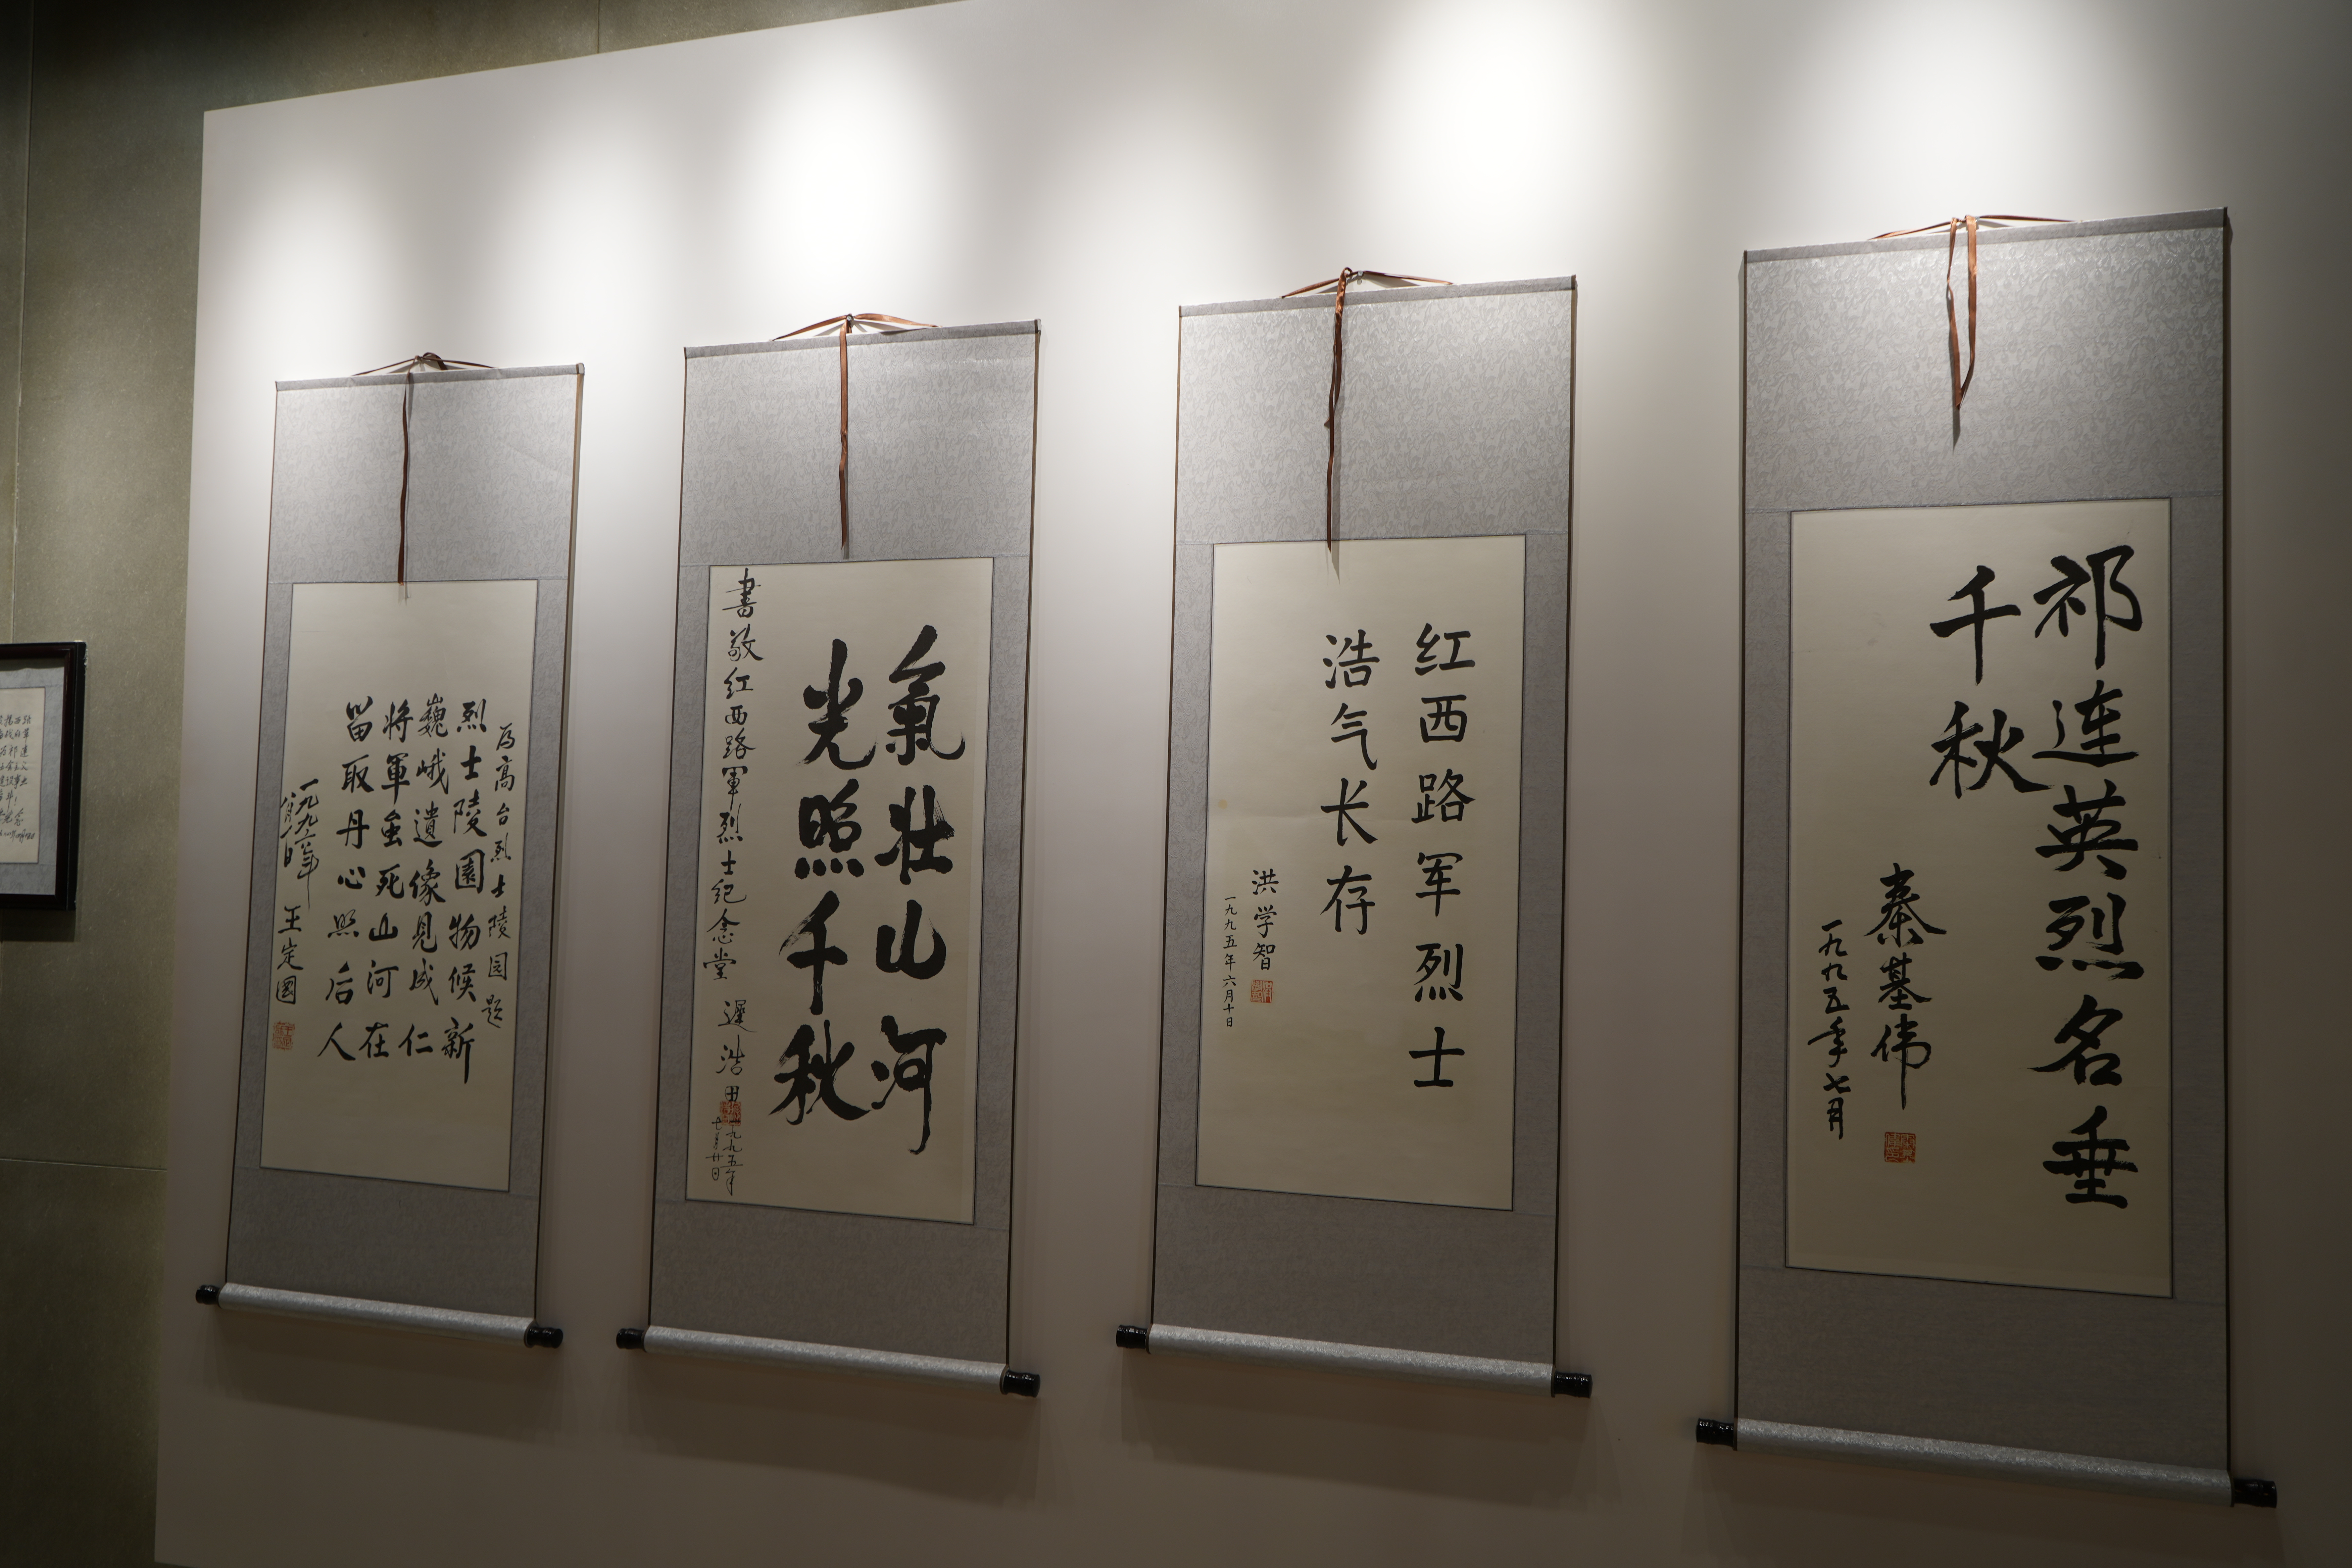 祁连英烈名垂
千秋
秦基伟
一九九五年七月
红西路军烈士
浩气长存
洪学智
一九九五年六月十日
氣壮山河
光照千秋
書敬红西路軍烈士纪念堂 遲浩田
一九九五年
七月廿日
为高台烈士陵园题
烈士陵園物候新
巍峨遺像見成仁
将軍虽死山河在
留取丹心照后人
王定國